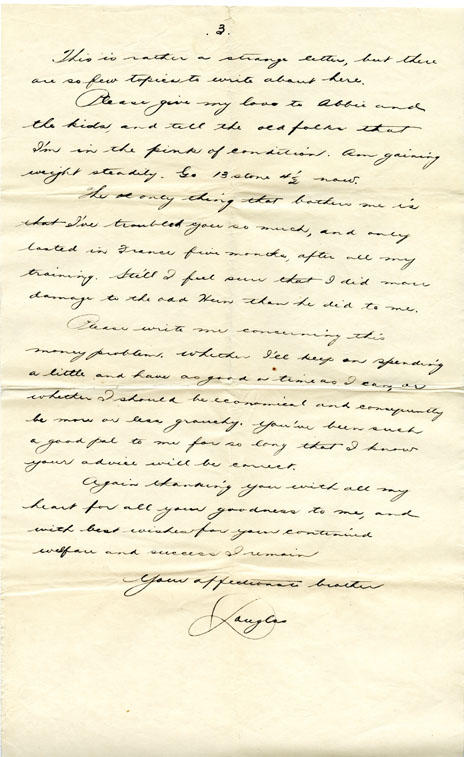 . 3 .
This is rather a strange letter, but there
are so few topics to write about here.
Please give my love to Abbie and
the kids, and tell the old folks that
I'm in the pink of condition. Am gaining
weight steadily. Go 13 stone 4½ now.
The only thing that bothers me is
that I've troubled you so much, and only
lasted in France five months, after all my
training. Still I feel sure that I did more
damage to the odd Hun than he did to me.
Please write me concerning this
money problem, whether I'll keep on spending
a little and have as good a time as I can, or
whether I should be economical and consequently
be more or less grouchy. You've been such
a good pal to me for so long that I know
your advise will be correct.
Again thanking you with all my
heart for all your goodness to me, and
with best wishes for your continued
welfare and success I remain
Your affectionate brother
Douglas